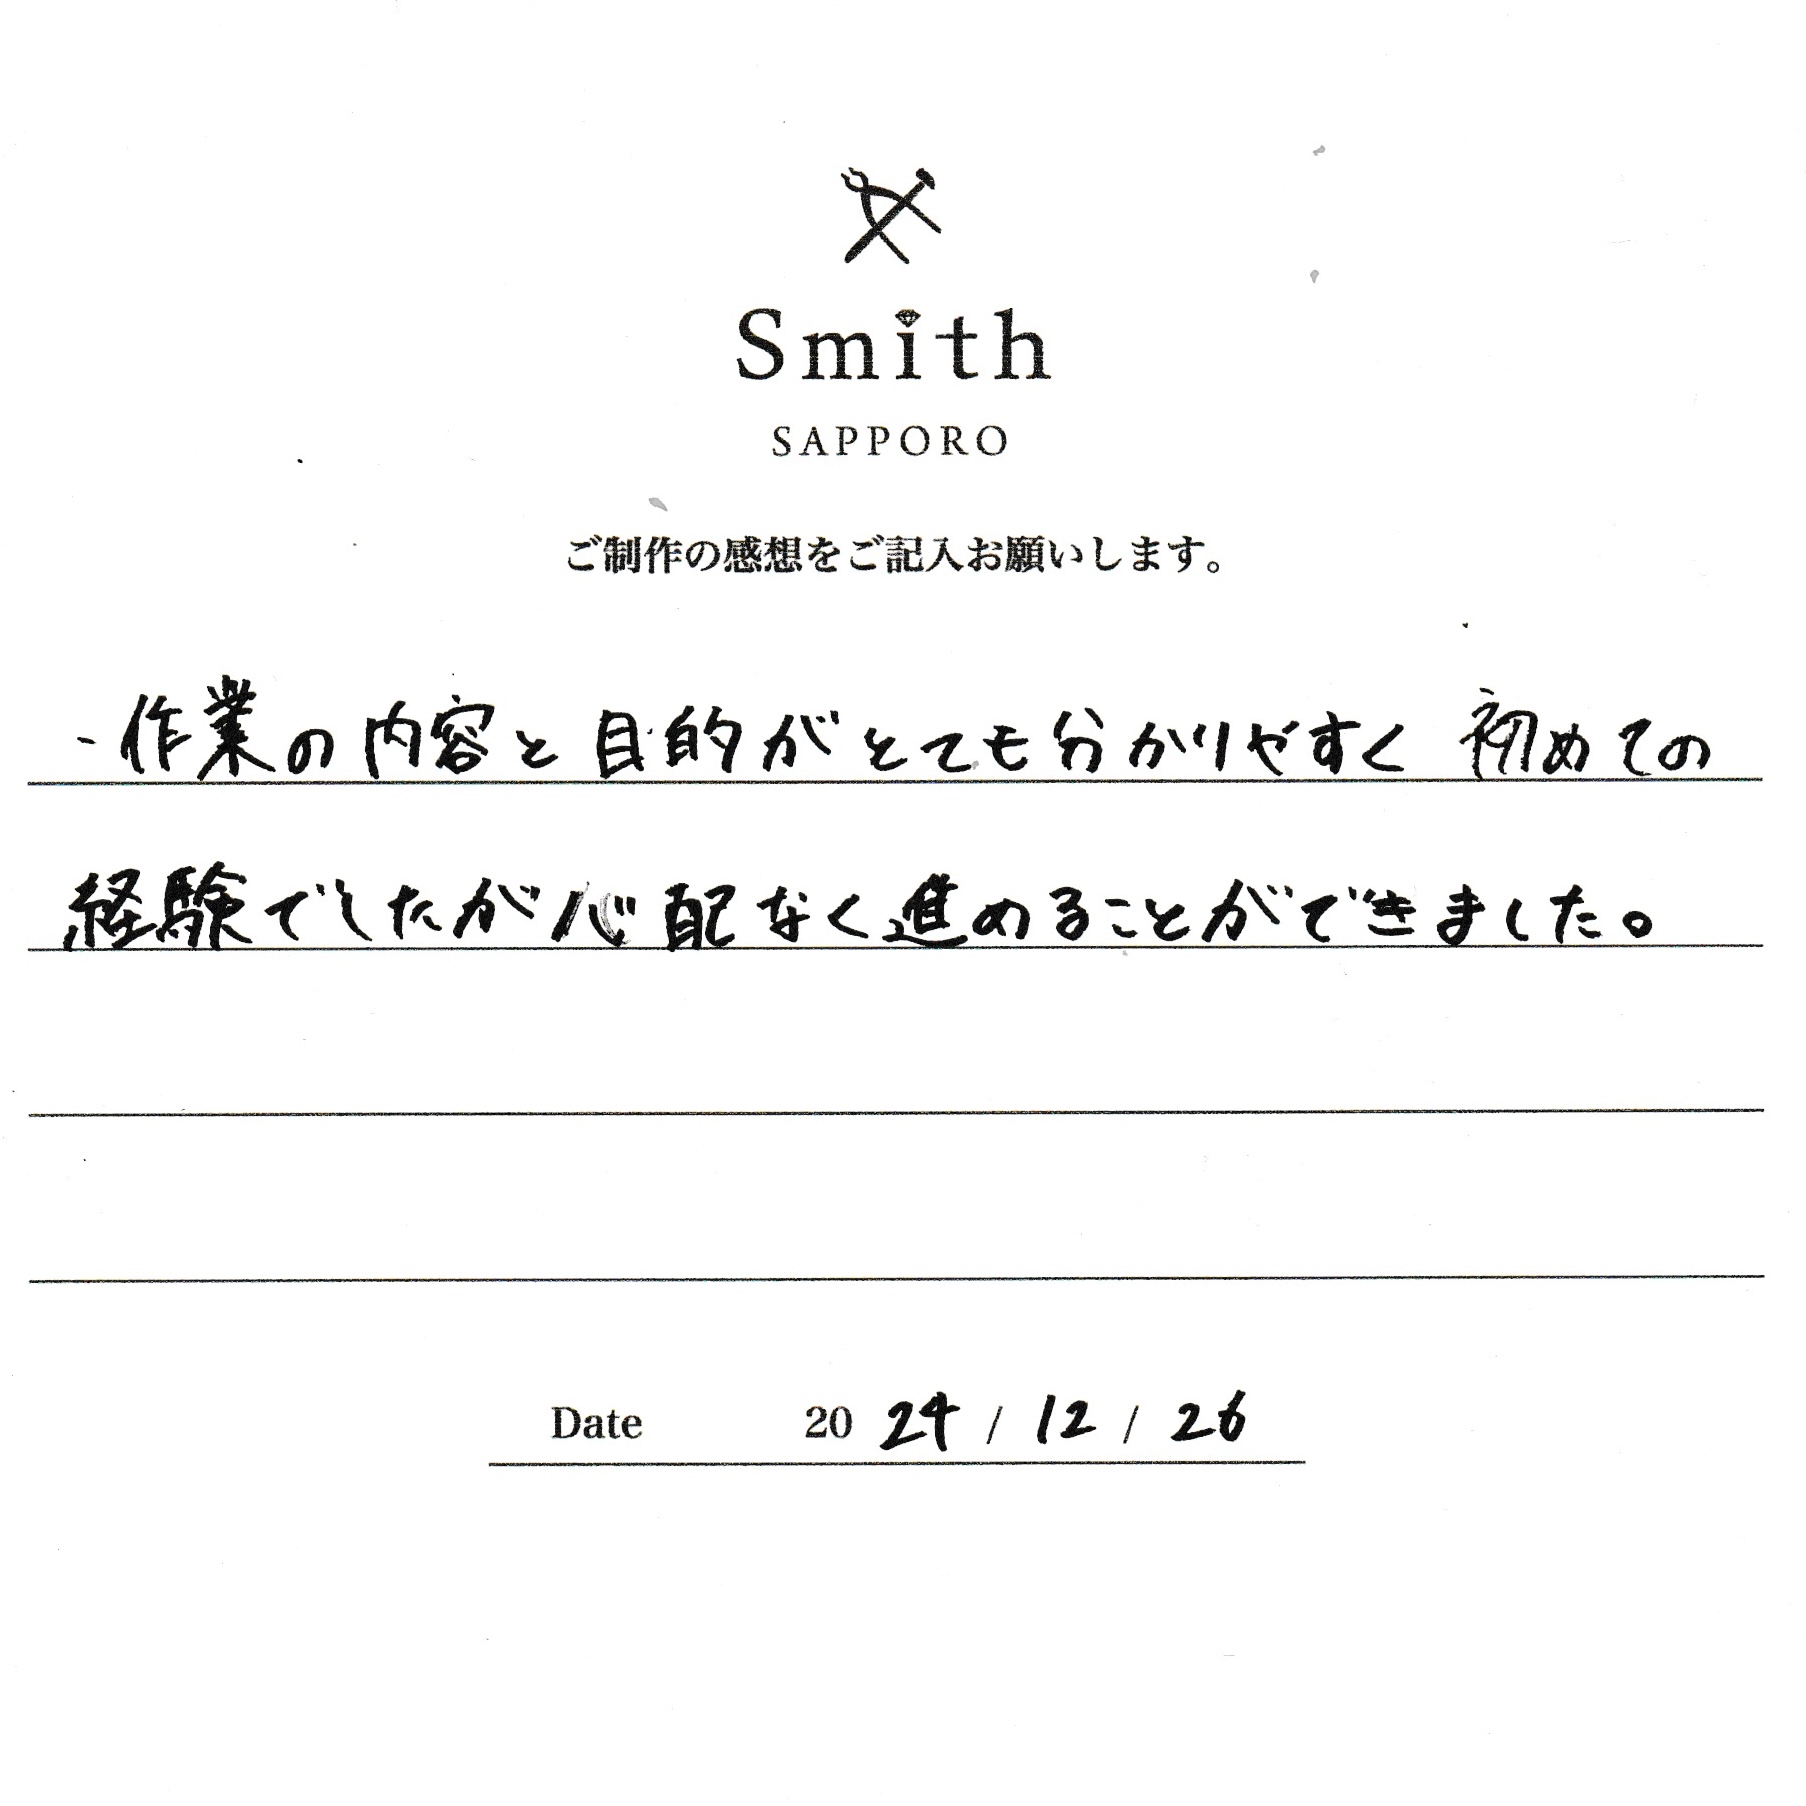 Smith
SAPPORO
ご制作の感想をご記入お願いします。
・作業の内容と目的がとても分かりやすく 初めての
経験でしたが心配なく進めることができました。
Date 2024 / 12 / 26